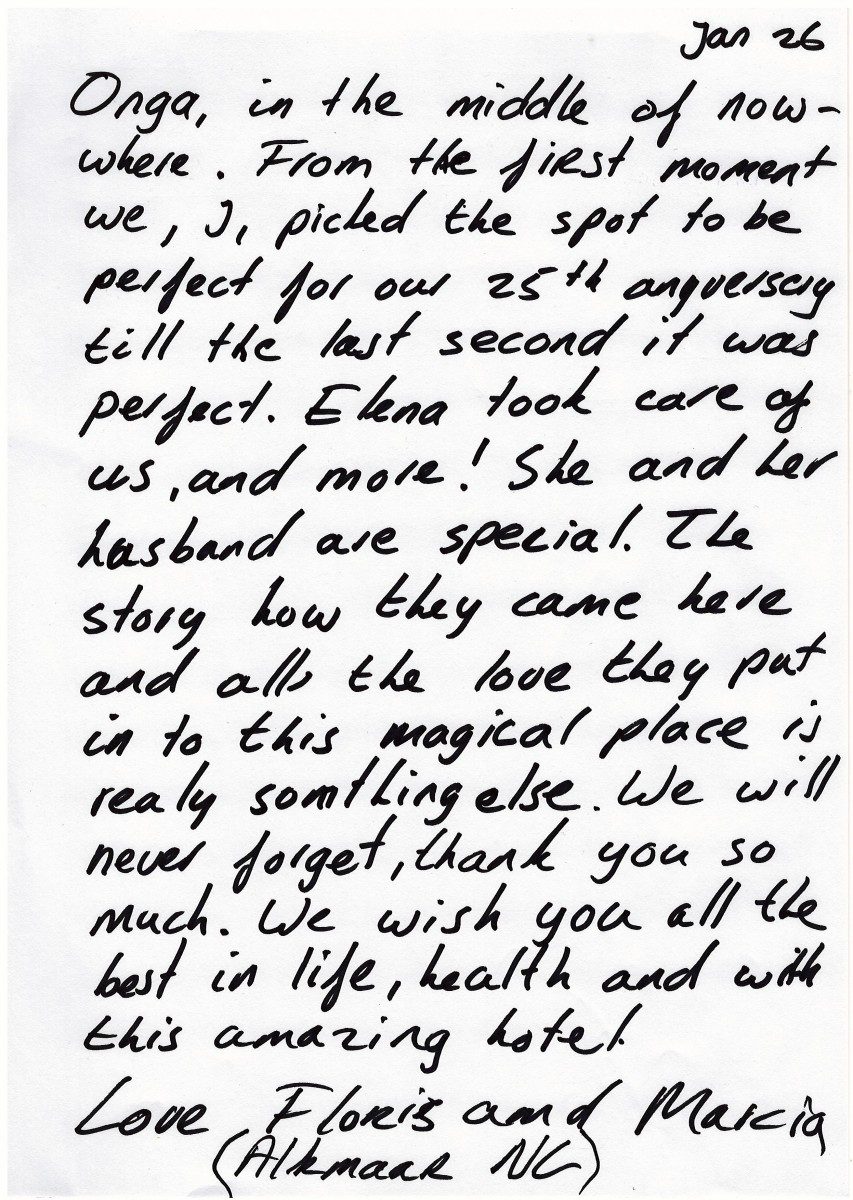 Jan 26
Onga, in the middle of now-
where. From the first moment
we, J, picked the spot to be
perfect for our 25th anyversary
till the last second it was
perfect. Elena took care of
us, and more! She and her
hasband are special. The
story how they came here
and all the love they put
in to this magical place is
realy somthing else. We will
never forget, thank you so
much. We wish you all the
best in life, health and with
this amazing hotel.
Love Floris and Marcia
(Alkmaar NL)